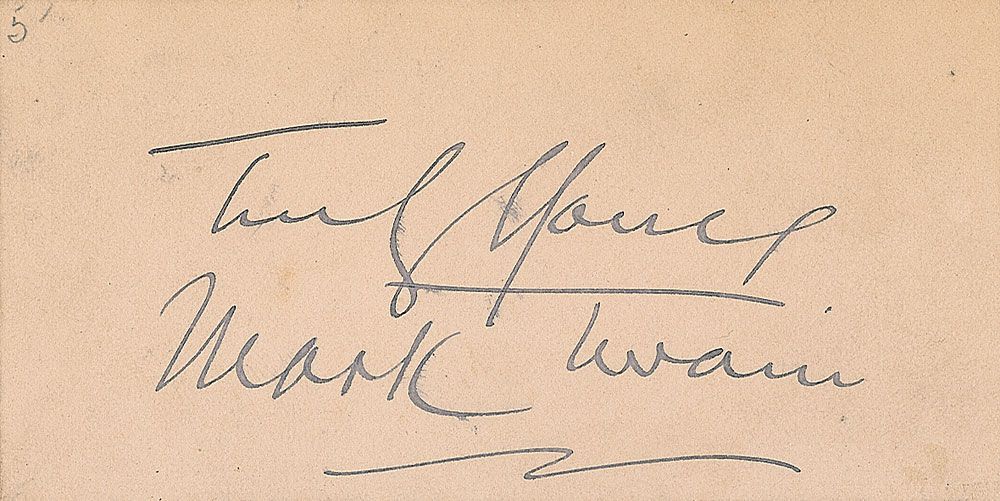 5
Truly Yours
Mark Twain